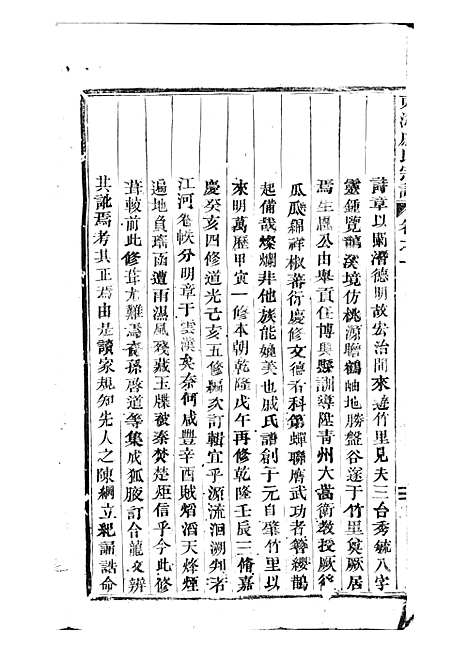 東海戚氏宗譜 卷之一
詩章以蘭漘德明故宏治間來遊竹里見夫三台秀毓八字
靈鍾覽鵲溪境仿桃源瞻鶴岫地勝盤谷遂于竹里奠厥居
焉生愚公由舉貢任博興縣訓導陞青州大嵩衛教授厥後
瓜瓞綿祥椒蕃衍慶修文德者科第蟬聯磨武功者簪纓鵲
起備哉燦爛非他族能媲美也戚氏譜創于元自肇竹里以
來明萬歷甲寅一修本朝乾隆戊午再修乾隆壬辰三脩嘉
慶癸亥四修道光己亥五修編次訂輯宜乎源流洄溯判若
江河卷帙分明章于雲漢矣奈何咸豐辛酉賊熖滔天烽烟
遍地負瑤函遭雨濕風殘藏玉牒被秦焚楚炬信乎今此修
葺較前此修葺尤難焉裔孫啓道等集成狐腋訂合龍文辨
其訛焉考其正焉由是讀家規知先人之陳綱立紀誦誥命